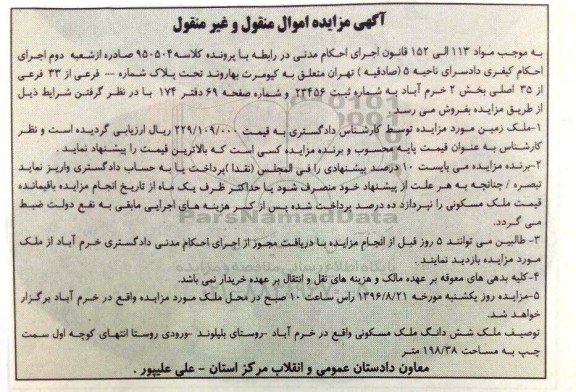 آگهی مزایده اموال منقول و غیر منقول
به موجب مواد ۱۱۳ الی ۱۵۲ قانون اجرای احکام مدنی در رابطه با پرونده کلاسه ۹۵۰۵۰۴ صادره ازشعبه دوم اجرای
احکام کیفری دادسرای ناحیه ۵ (صادقیه ) تهران متعلق به کیومرث بهاروند تحت پلاک شماره --- فرعی از ۳۳ فرعی
از ۳۵ اصلی بخش ۲ خرم آباد به شماره ثبت ۲۳۴۵۶ و شماره صفحه ۶۹ دفتر ۱۷۴ با در نظر گرفتن شرایط ذیل
از طریق مزایده بفروش می رسد :
۱-ملک زمین مورد مزایده توسط کارشناس دادگستری به قیمت ۲۲۹/۱۰۹/۰۰۰ ریال ارزیابی گردیده است و نظر
کارشناس به عنوان قیمت پایه محسوب و برنده مزایده کسی است که بالاترین قیمت را پیشنهاد نماید .
۲-برنده مزایده می بایست ۱۰ درصد پیشنهادی را فی المجلس (نقدا )پرداخت یا به حساب دادگستری واریز نماید
تبصره / چنانچه به هر علت از پیشنهاد خود منصرف شود یا حداکثر ظرف یک ماه از تاریخ انجام مزایده باقیمانده
قیمت ملک مسکونی را نپردازد ده درصد پرداخت شده پس از کسر هزینه های اجرایی مابقی به نفع دولت ضبط
می گردد.
۳- طالبین می توانند ۵ روز قبل از انجام مزایده با دریافت مجوز از اجرای احکام مدنی دادگستری خرم آباد از ملک
مورد مزایده بازدید نمایند .
۴-کلیه بدهی های معوقه بر عهده مالک و هزینه های نقل و انتقال بر عهده خریدار نمی باشد.
۵-مزایده روز یکشنبه مورخه ۱۳۹۶/۸/۲۱ راس ساعت ۱۰ صبح در محل ملک مورد مزایده واقع در خرم آباد برگزار
خواهد شد.
توصیف ملک شش دانگ ملک مسکونی واقع در خرم آباد -روستای بلیلوند -ورودی روستا انتهای کوچه اول سمت
چپ به مساحت ۱۹۸/۳۸ متر
معاون دادستان عمومی و انقلاب مرکز استان - علی علیپور .
ParsNamadData
پایگاه اطلاع رسانی مناقصه و مزایده